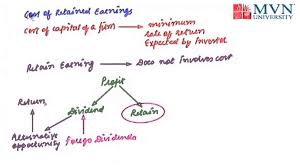 Cost of Retained Earnings
MVN
UNIVERSITY
Cost of capital of a firm → minimum
rate of return
Expected by Investor
Retain Earning → Does not involves cost
Profit
Return
Dividend
Retain
Alternative
opportunity
Forego Dividends